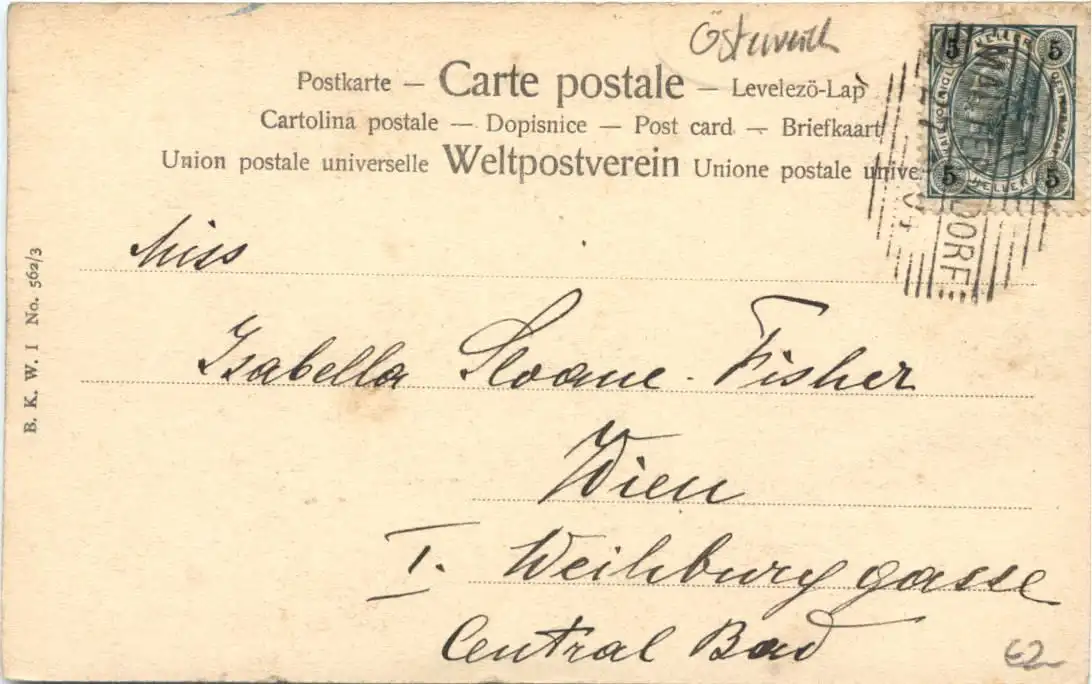 Österreich
Postkarte – Carte postale – Levelezö-Lap
Cartolina postale — Dopisnice — Post card — Briefkaart
Union postale universelle Weltpostverein Unione postale unive
5 HELLER 5
5 HELLER 5
DORF
B. K. W. I No. 562/3
Miss
Isabella Sloane-Fisher
Wien
I. Weihburggasse
Central Bad
€2-